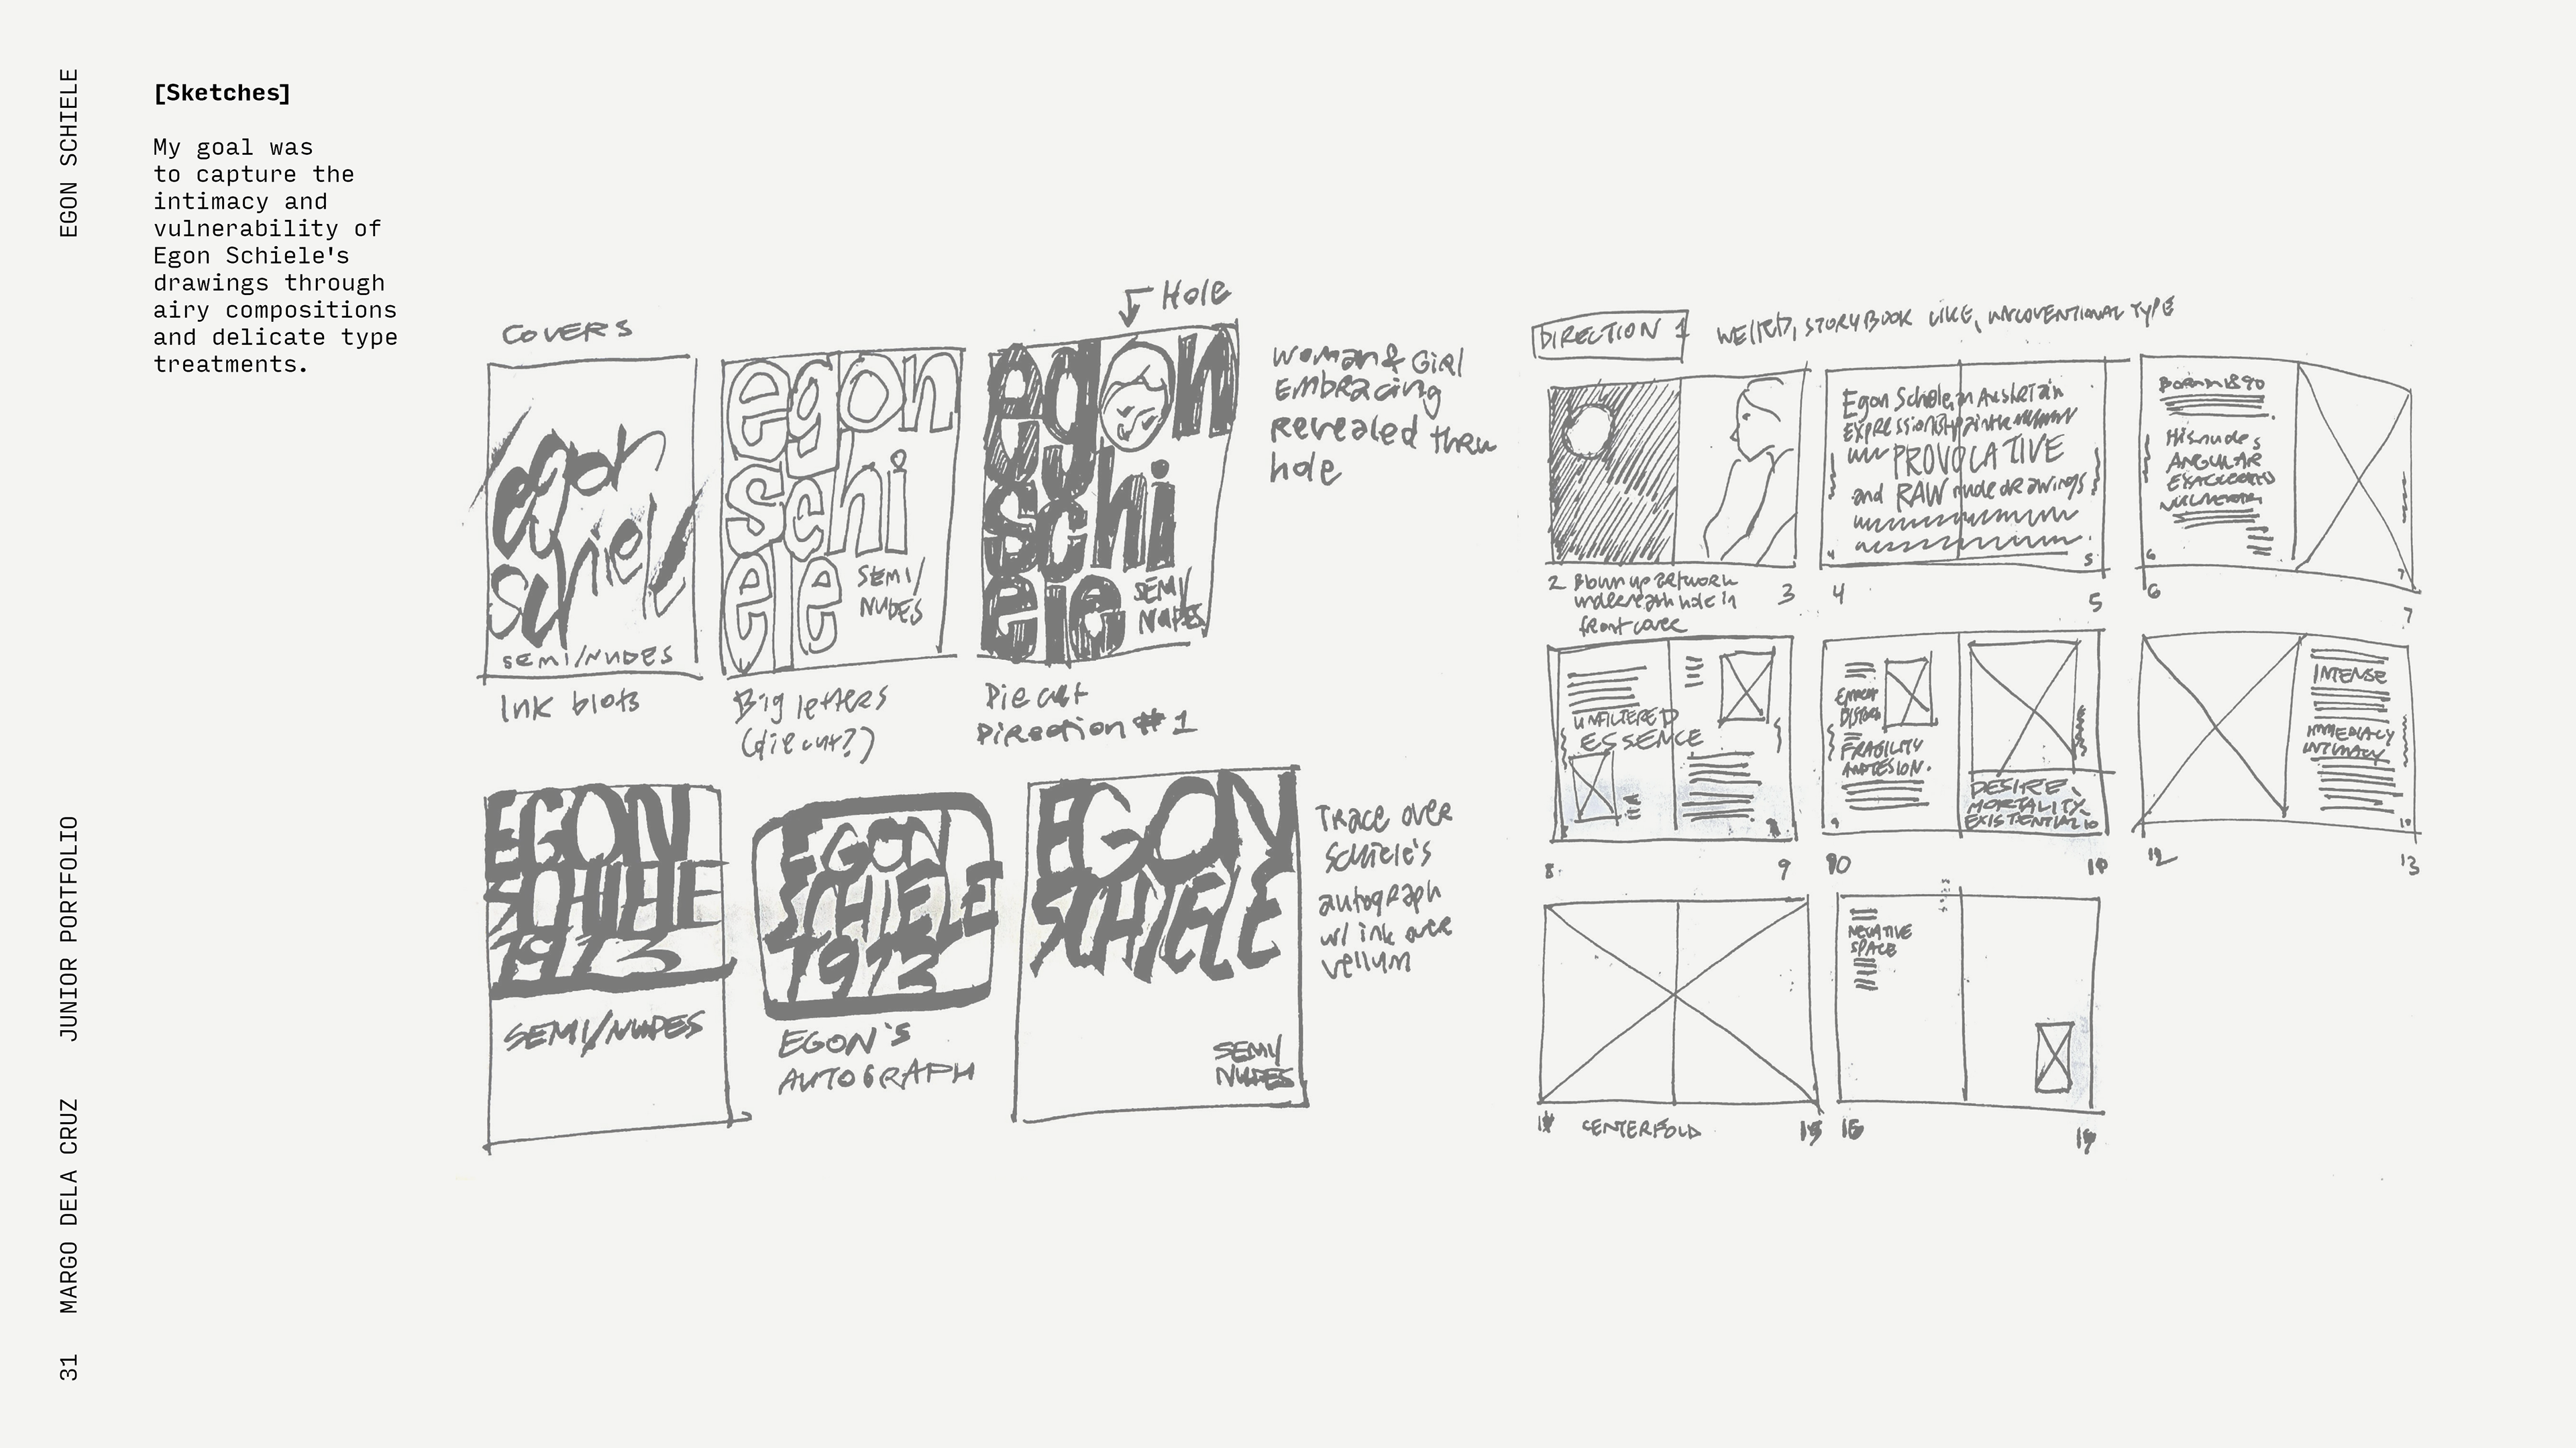 EGON SCHIELE
JUNIOR PORTFOLIO
MARGO DELA CRUZ
31
[Sketches]
My goal was
to capture the
intimacy and
vulnerability of
Egon Schiele's
drawings through
airy compositions
and delicate type
treatments.
COVERS
egon
schiel
SEMI/NUDES
Ink blots
egon
schi
ele
SEMI/
NUDES
Big letters
(die cut?)
Hole
egon
schi
ele
SEMI/
NUDES
Die cut
Direction #1
Woman & Girl
Embracing
revealed thru
hole
EGON
SCHIELE
1913
SEMI/NUDES
EGON
SCHIELE
1913
EGON'S
AUTOGRAPH
EGON
SCHIELE
SEMI/
NUDES
Trace over
Schiele's
autograph
w/ ink over
vellum
DIRECTION 1
WEIRD, STORYBOOK LIKE, UNCOVENTIONAL TYPE
2 Blown up artwork
underneath hole in
front cover
3
Egon Schiele, an Austrian
EXPRESSIONIST
PROVOCATIVE
and RAW nude drawings
4
5
4
5
Born in 1890
His nudes
ANGULAR
6
7
6
7
UNFILTERED
ESSENCE
8
9
FRAGILITY
DESIRE,
MORTALITY,
EXISTENTIAL
9
10
10
INTENSE
IMMEDIACY
INTIMACY
12
13
CENTERFOLD
15
NEGATIVE
SPACE
16